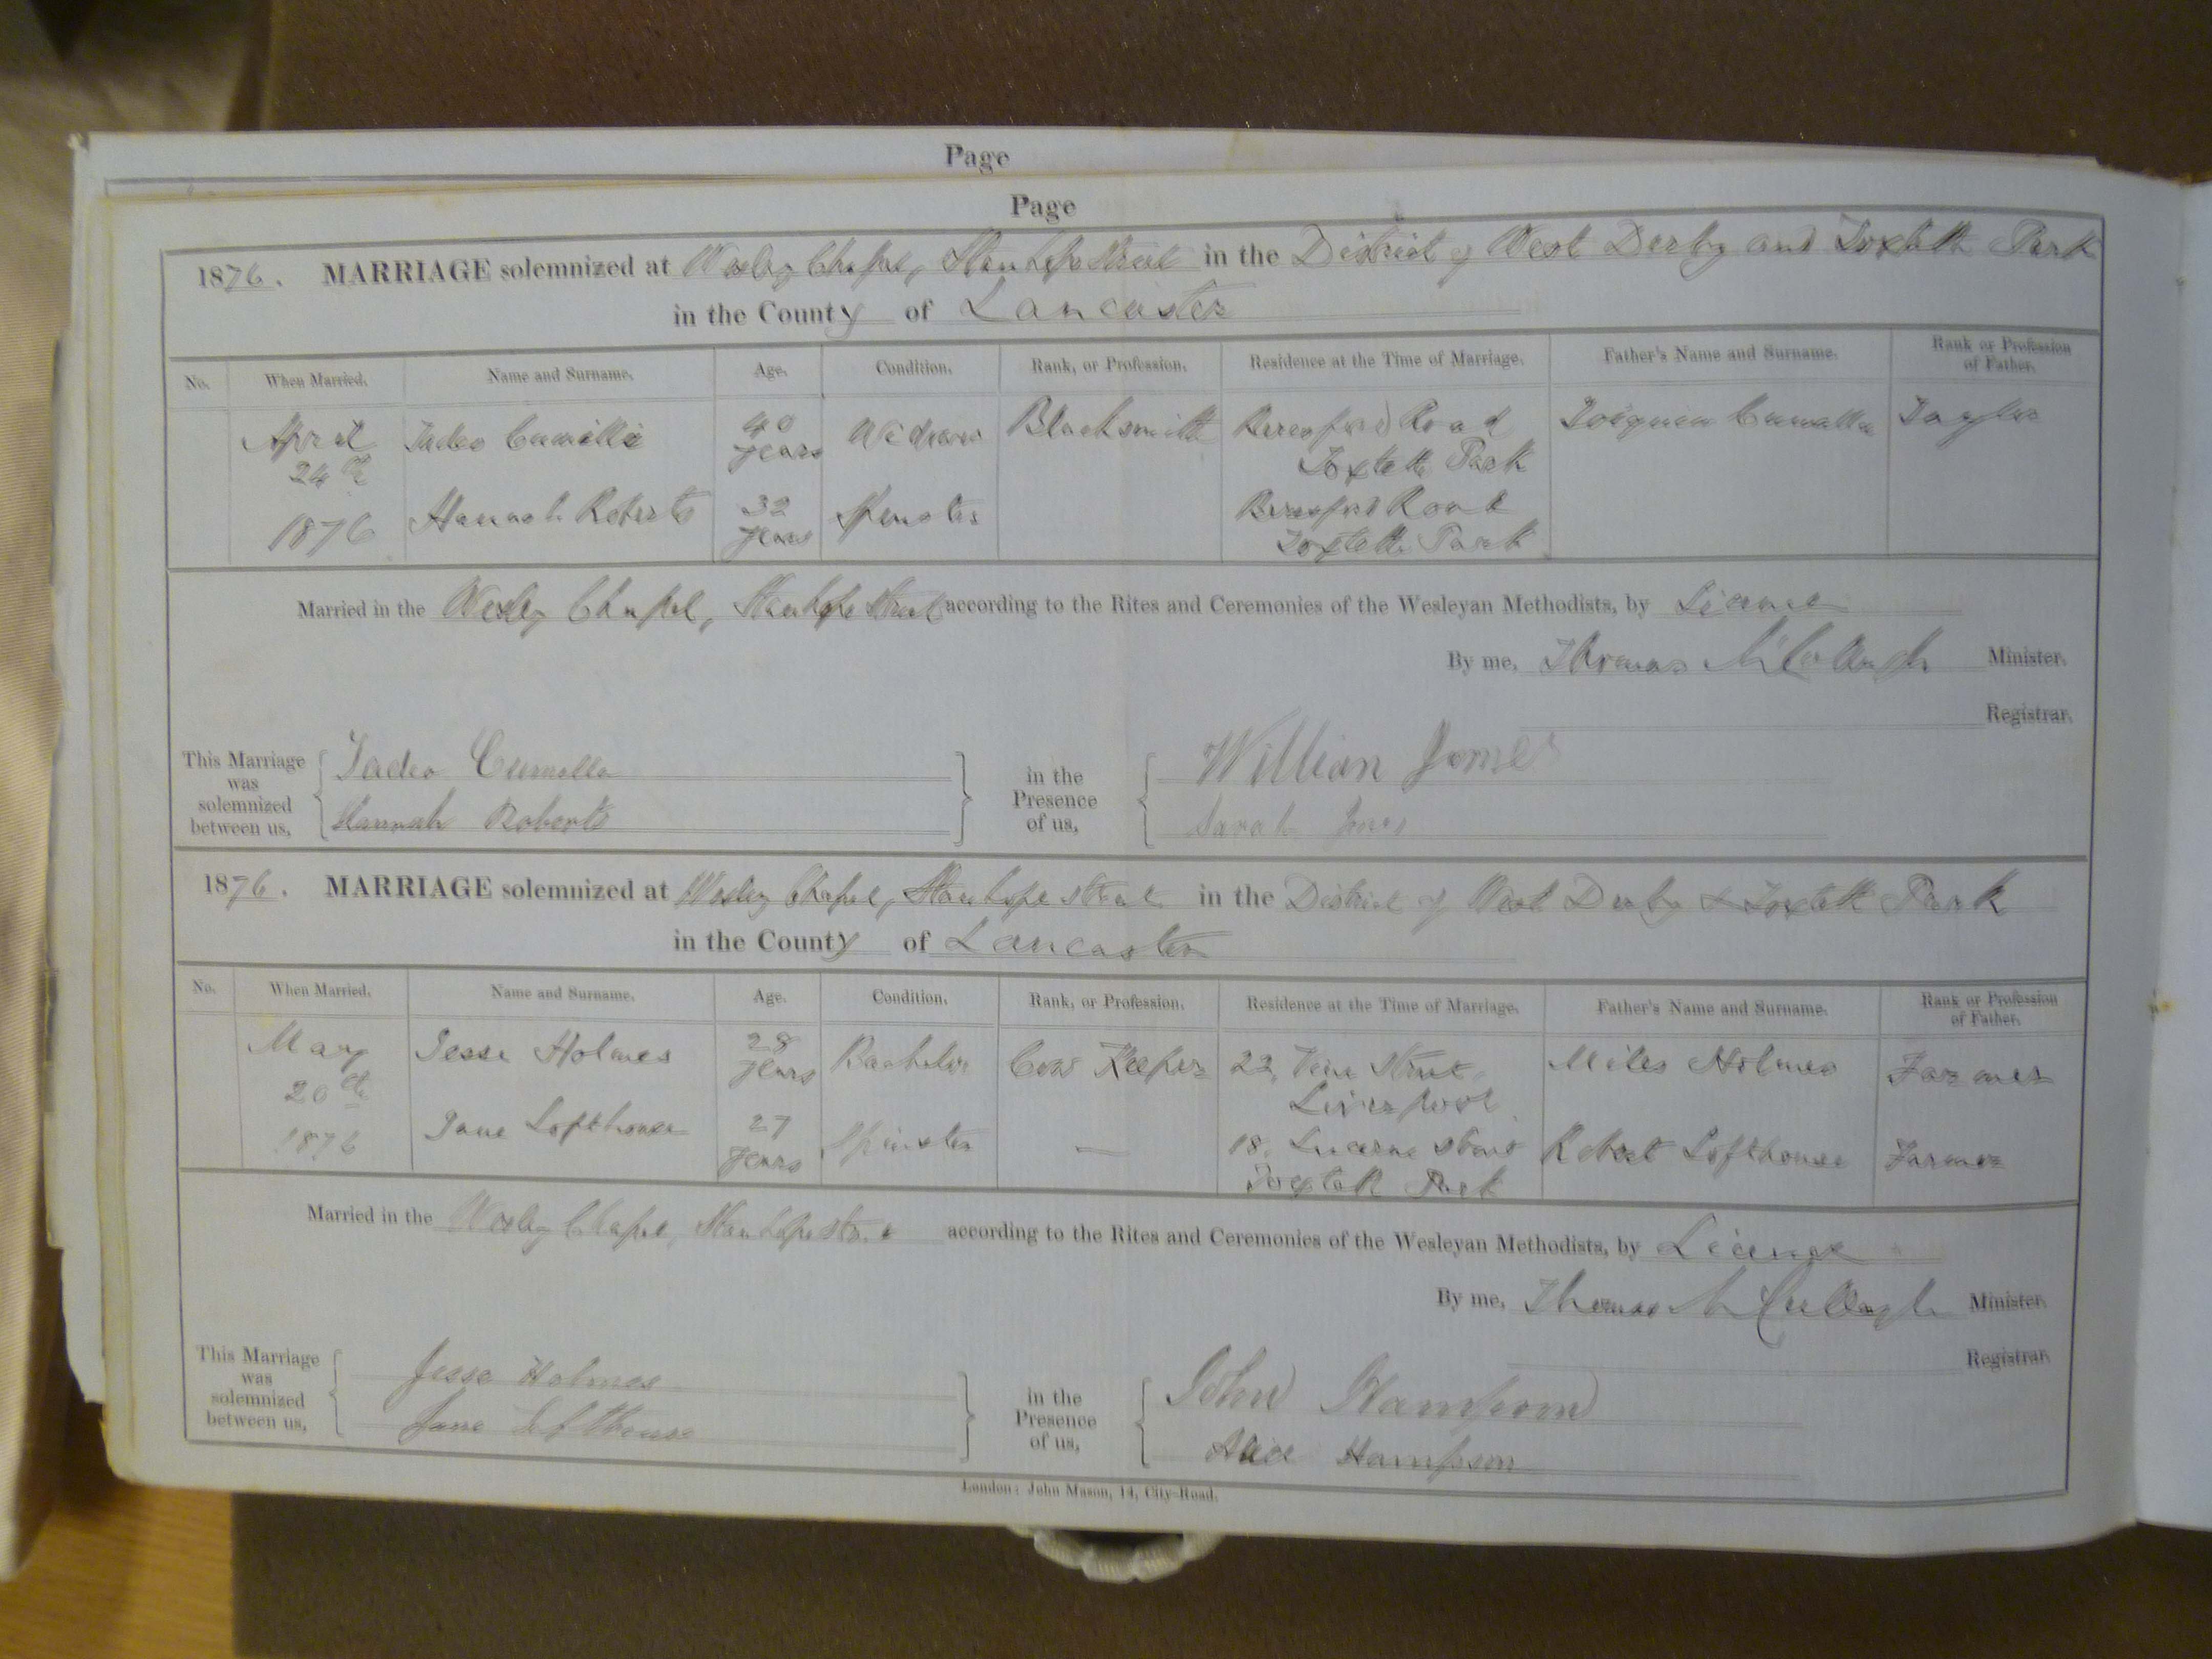 Page
Page
1876. MARRIAGE solemnized at Wesley Chapel, Stanhope Street in the District of West Derby and Toxteth Park
in the County of Lancaster
No. When Married. Name and Surname. Age. Condition. Rank, or Profession. Residence at the Time of Marriage. Father's Name and Surname. Rank or Profession of Father.
April 24th 1876 Tadeo 40 years Widower Blacksmith Beresford Road Toxteth Park
Hannah Roberts 32 years Spinster Beresford Road Toxteth Park
Married in the Wesley Chapel, Stanhope Street according to the Rites and Ceremonies of the Wesleyan Methodists, by Licence
By me, Thomas McCullagh Minister.
Registrar.
This Marriage was solemnized between us, Tadeo Hannah Roberts in the Presence of us, William Jones Sarah Jones
1876. MARRIAGE solemnized at Wesley Chapel, Stanhope Street in the District of West Derby & Toxteth Park
in the County of Lancaster
No. When Married. Name and Surname. Age. Condition. Rank, or Profession. Residence at the Time of Marriage. Father's Name and Surname. Rank or Profession of Father.
May 20th 1876 Jesse Holmes 28 years Bachelor Cow Keeper 22, Vine Street, Liverpool Miles Holmes Farmer
Jane Lofthouse 27 years Spinster — 18, Lucerne Street Toxteth Park Robert Lofthouse Farmer
Married in the Wesley Chapel, Stanhope Street according to the Rites and Ceremonies of the Wesleyan Methodists, by Licence
By me, Thomas McCullagh Minister.
Registrar.
This Marriage was solemnized between us, Jesse Holmes Jane Lofthouse in the Presence of us, John Hampson Alice Hampson
London: John Mason, 14, City-Road.